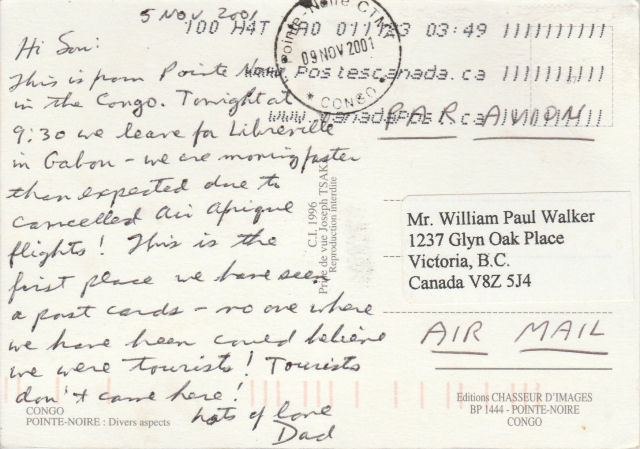 5 NOV 2001
Hi Son:
This is from Pointe Noire
in the Congo. Tonight at
9:30 we leave for Libreville
in Gabon - we are moving faster
than expected due to
cancelled Air Afrique
flights! This is the
first place we have seen
a post cards - no one where
we have been could believe
we were tourists! Tourists
don't come here!
Lots of love
Dad
100 H4T 011123 03:49
www.Postescanada.ca
www.CanadaPost.ca
Pointe-Noire CTM
09 NOV 2001
* CONGO *
PAR AVION
C.I. 1996
Prise de vue Joseph TSAK
Reproduction interdite
Mr. William Paul Walker
1237 Glyn Oak Place
Victoria, B.C.
Canada V8Z 5J4
AIR MAIL
CONGO
POINTE-NOIRE : Divers aspects
Editions CHASSEUR D'IMAGES
BP 1444 - POINTE-NOIRE
CONGO